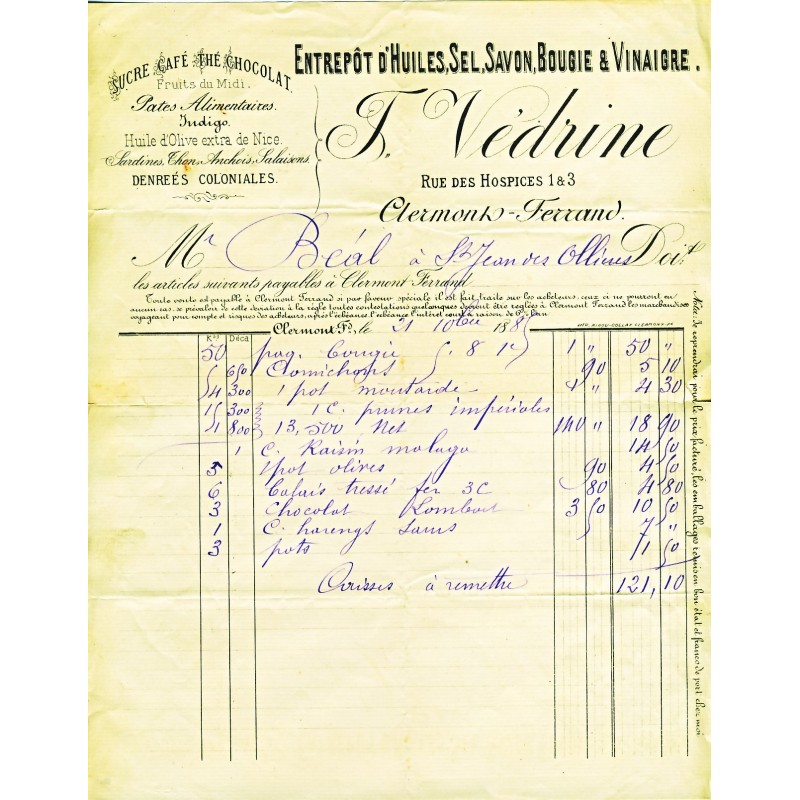 SUCRE CAFÉ THÉ CHOCOLAT.
Fruits du Midi.
Pates Alimentaires.
Indigo.
Huile d'Olive extra de Nice.
Sardines, Thon, Anchois, Salaisons.
DENREÉS COLONIALES.
ENTREPÔT D'HUILES, SEL, SAVON, BOUGIE & VINAIGRE.
F. Védrine
RUE DES HOSPICES 1 & 3
Clermont-Ferrand.
Mr Béal à St Jean des Ollières Doit
les articles suivants payables à Clermont Ferrand
Toute vente est payable à Clermont Ferrand si par faveur spéciale il est fait traite sur les acheteurs, ceux ci ne pourront en
aucun cas, se prévaloir de cette dérogation à la règle toutes contestations quelconques devront être réglées à Clermont Ferrand les marchandises
voyageant pour compte et risques des acheteurs, après l'échéance l'intérêt court à raison de 6% l'an
Clermont-Fd, le 21 10bre 188
Kos Déca
50 paq. bougie 8 1 " 50 "
650 Cornichons 90 5 10
4 300 1 pot moutarde " 4 30
15 300 1 C. prunes impériales
1 800 13,500 Net 140 " 18 90
1 C. Raisin malaga 14 50
5 1 pot olives 90 4 50
6 balais tressé fer 3C 80 4 80
3 Chocolat Lombart 3 50 10 50
1 C. harengs saurs 7 "
3 pots 1 50
à remettre 121,10
Nota: Je reprendrai pour le prix facturé, les emballages remis en bon état et franco de port chez moi